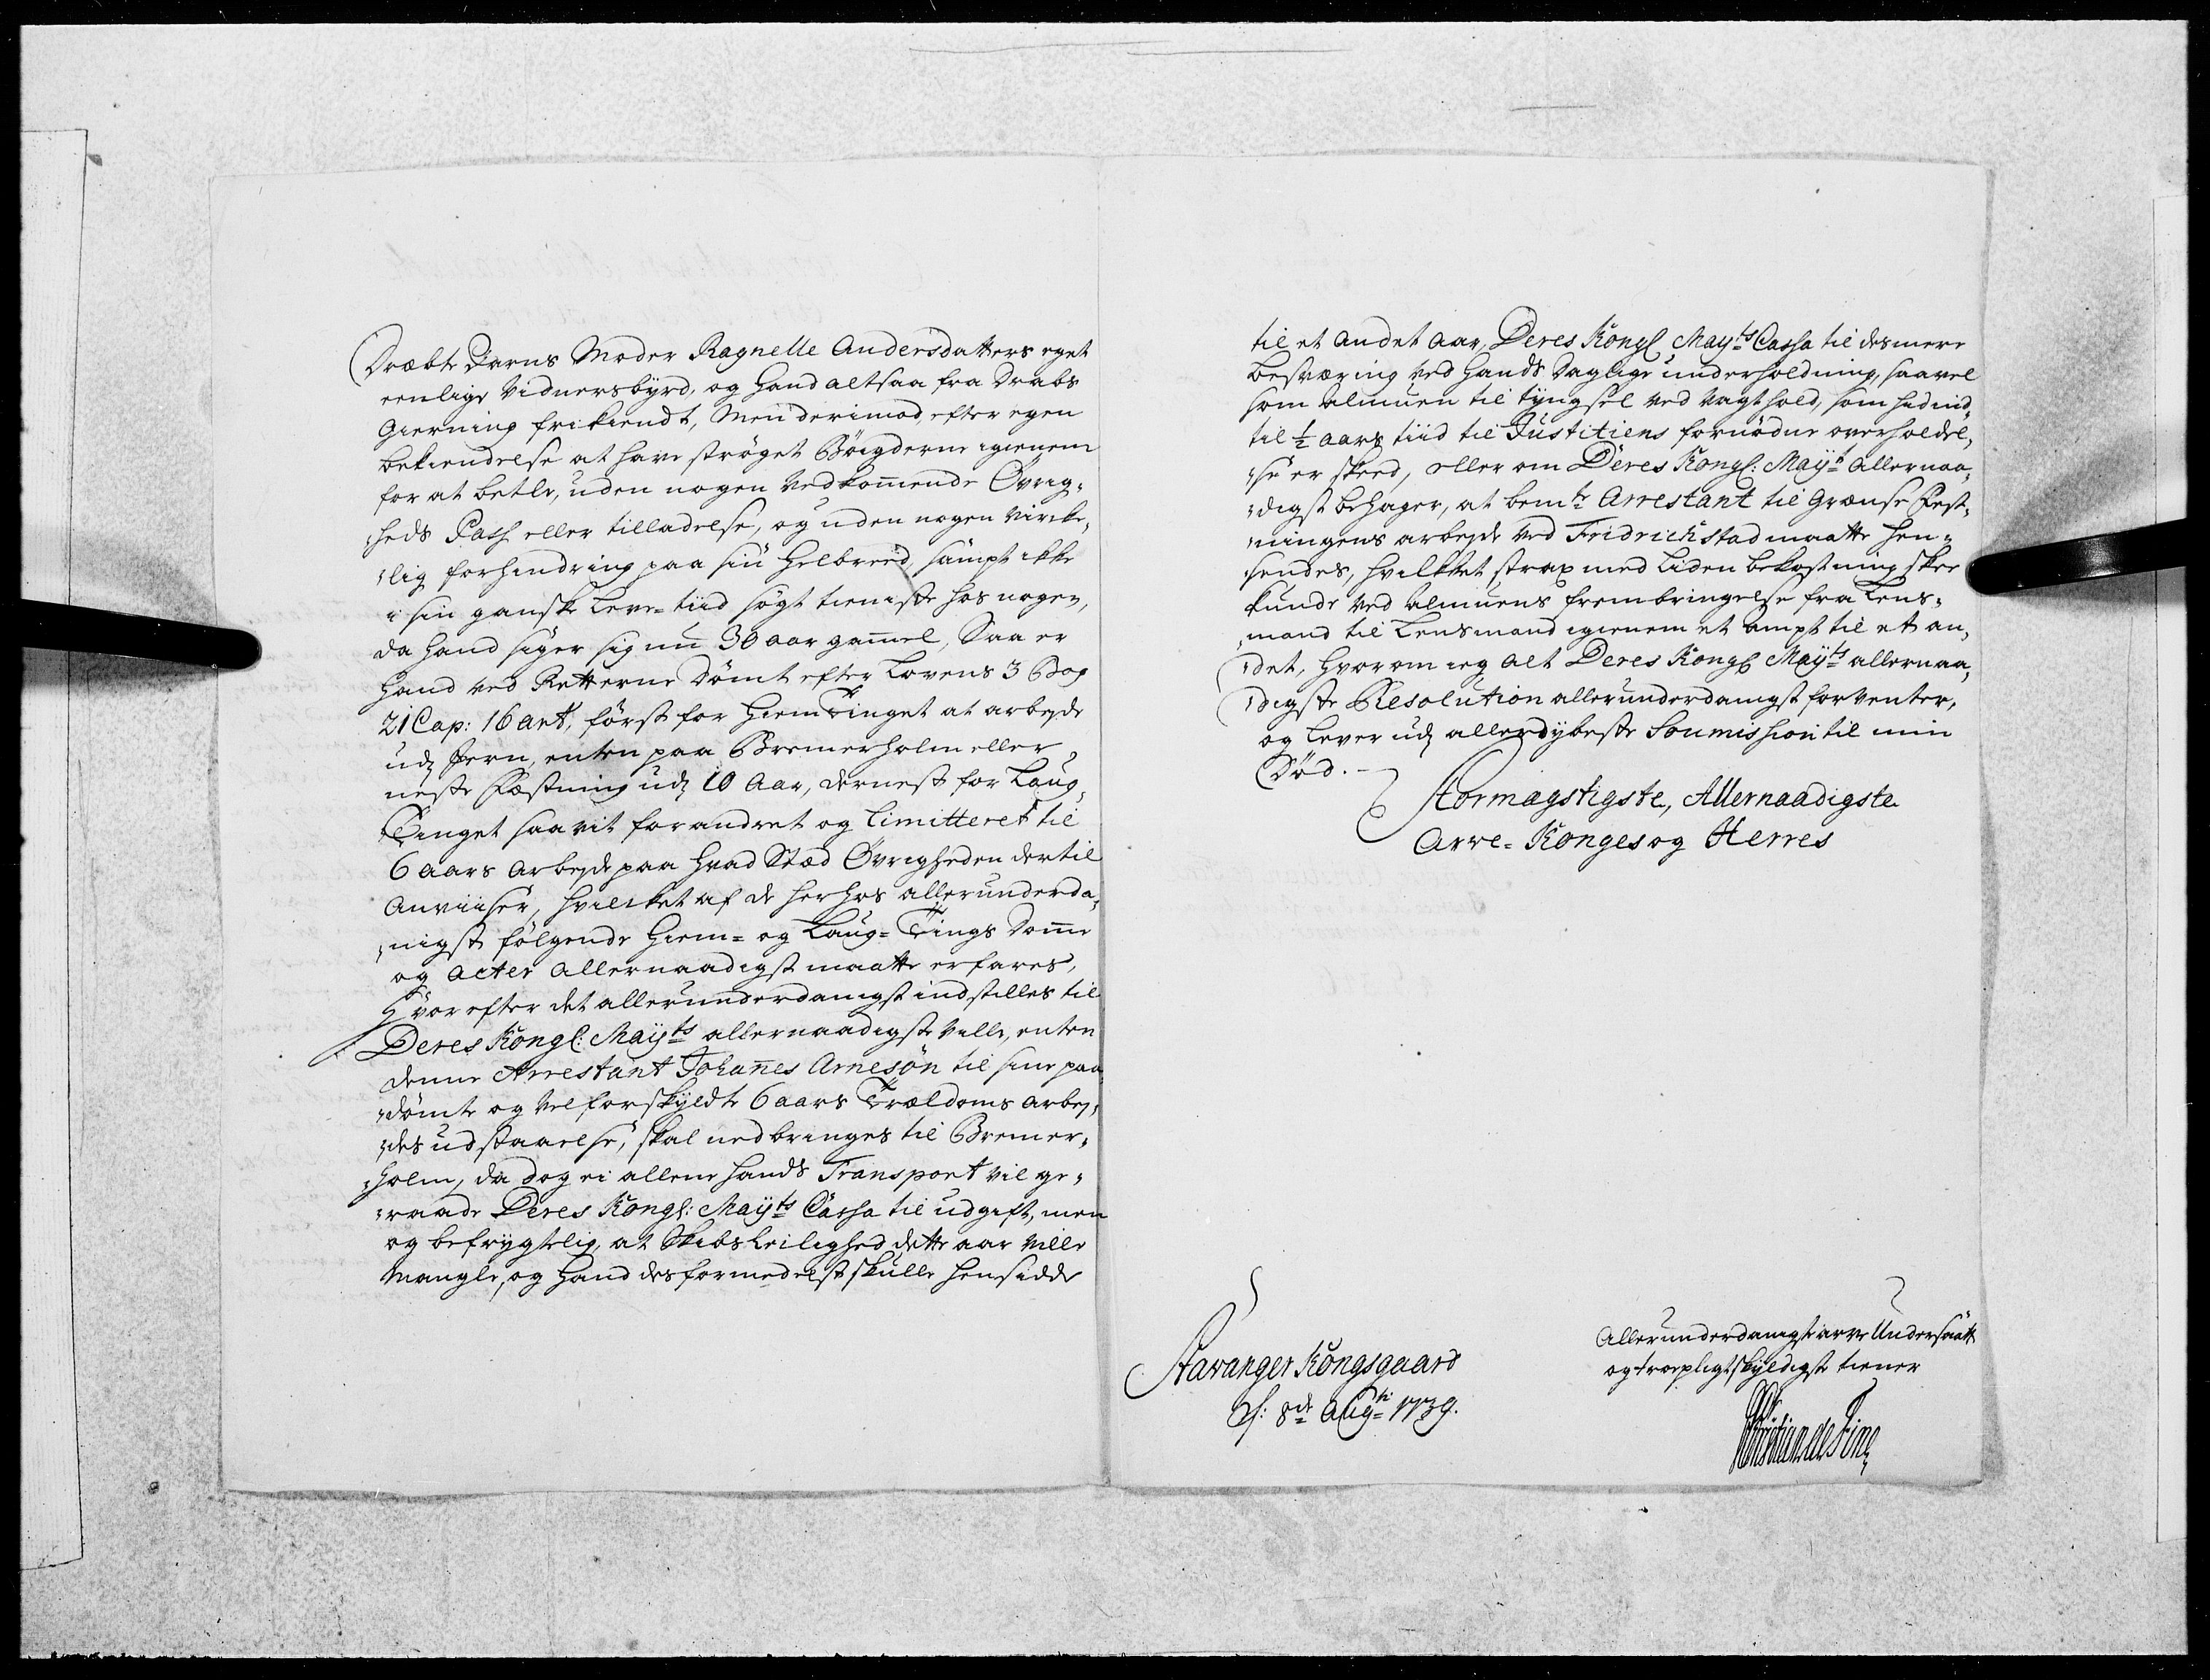 Dræbte Barns Moder Ragnelle Andersdatters eget
eenlige Vidnersbyrd, og hand altsaa fra Drabs
Gierning frikiendt, Men derimod, efter egen
bekiendelse at have strøget Bøigderne igienem
for at betle, uden nogen vedkom̅ende Øvrig-
heds Pass eller tilladelse, og uden nogen virke-
lig forhindring paa sin Helbreed, sampt ikke
i sin ganske Leve-tiid søgt tieniste hos nogen,
da hand siger sig nu 30 aar gam̅el, Saa er
Hand ved Retterne Dømt efter Lovens 3 Bog
21 Cap: 16 art, først for HiemTinget at arbejde
udj Jern, enten paa Bremerholm eller
neste Fæstning udj 10 Aar, dernest for Laug-
Tinget saavit forandret og limitteret til
6 aars Arbejde paa hvad Stæd Øvrigheden dertil
Anviiser, hvilcket af de herhos allerunderda-
nigst følgende Hiem- og Laug-Tings Dom̅e
og Acter Allernaadigst maatte erfares,
Hvorefter det allerunderdanigst indstilles til
Deres Kongl: Mayts allernaadigste Ville, enten
denne Arrestant Johan̅es Arnesøn til sine paa
dømte og Velforskyldte 6 aars Trældoms Arbej-
des udstaaelse, skal nedbringes til Bremer-
holm, da dog ei allene hands Transport vil ge-
raade Deres Kongl: Mayts Cassa til udgift, men
og befrygtelig, at Skibs Leilighed dette aar ville
Mangle, og Hand desformedelst skulle hensidde
til et andet Aar, Deres Kongl Mayts Cassa til desmere
besværing ved Hands Daglige underholdning, saavel
som Almuen til tyngsel ved Vagthold, som hid ind
til ½ Aars tiid til Justitiens fornødne overholdel-
se er skeed, eller om Deres Kongl: Mayt Allernaa-
digst behager, at bemte Arrestant til Grænse Fest-
ningens arbejde ved Fridrichstad maatte hen-
sendes, hvilket strax med Liden bekostning skee
kunde ved Almuens frembringelse fra Lens-
mand til Lensmand igienem et Ampt til et an-
det, Hvorom ieg Alt Deres Kongl Mayts allernaa-
digste Resolution allerunderdanigst forventer,
og Lever udj allerdybeste Soumission til min
Død.
Stormægtigste, Allernaadigste
Arve-Konges og Herres
Allerunderdanigste arve Undersaatt
og troepligtskyldigste tiener
Stavanger Kongsgaard
d: 8de Augti 1739.
Christian de Fine